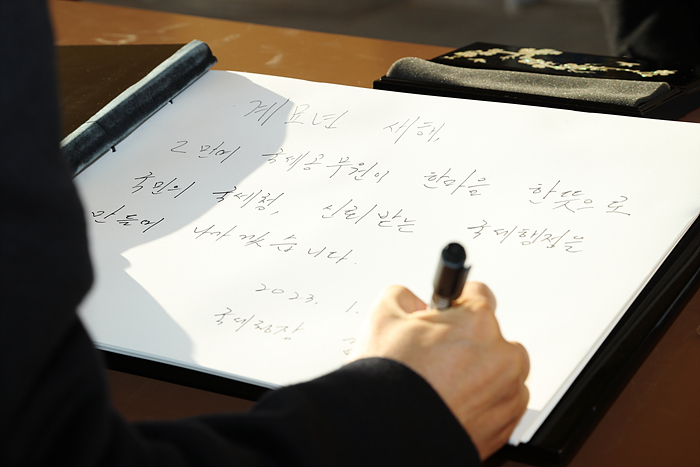 계묘년 새해,
2만여 국세공무원이 한마음 한뜻으로
국민의 국세청, 신뢰받는 국세행정을
만들어 나가겠습니다.
2023. 1.
국세청장